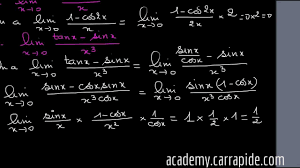 lim x→0 /x
n a lim x→0 (1-cos2x)/x = lim x→0 (1-cos2x)/2x × 2 = 0×2=0
lim x→0 (tanx-sinx)/x³
n a lim x→0 (tanx-sinx)/x³ = lim x→0 (sinx/cosx - sinx)/x³
= lim x→0 (sinx-cosx sinx)/(x³cosx) = lim x→0 sinx(1-cosx)/(x³cosx)
= lim x→0 sinx/x × (1-cosx)/x² × 1/cosx = 1×1/2×1=1/2
academy.carrapide.com